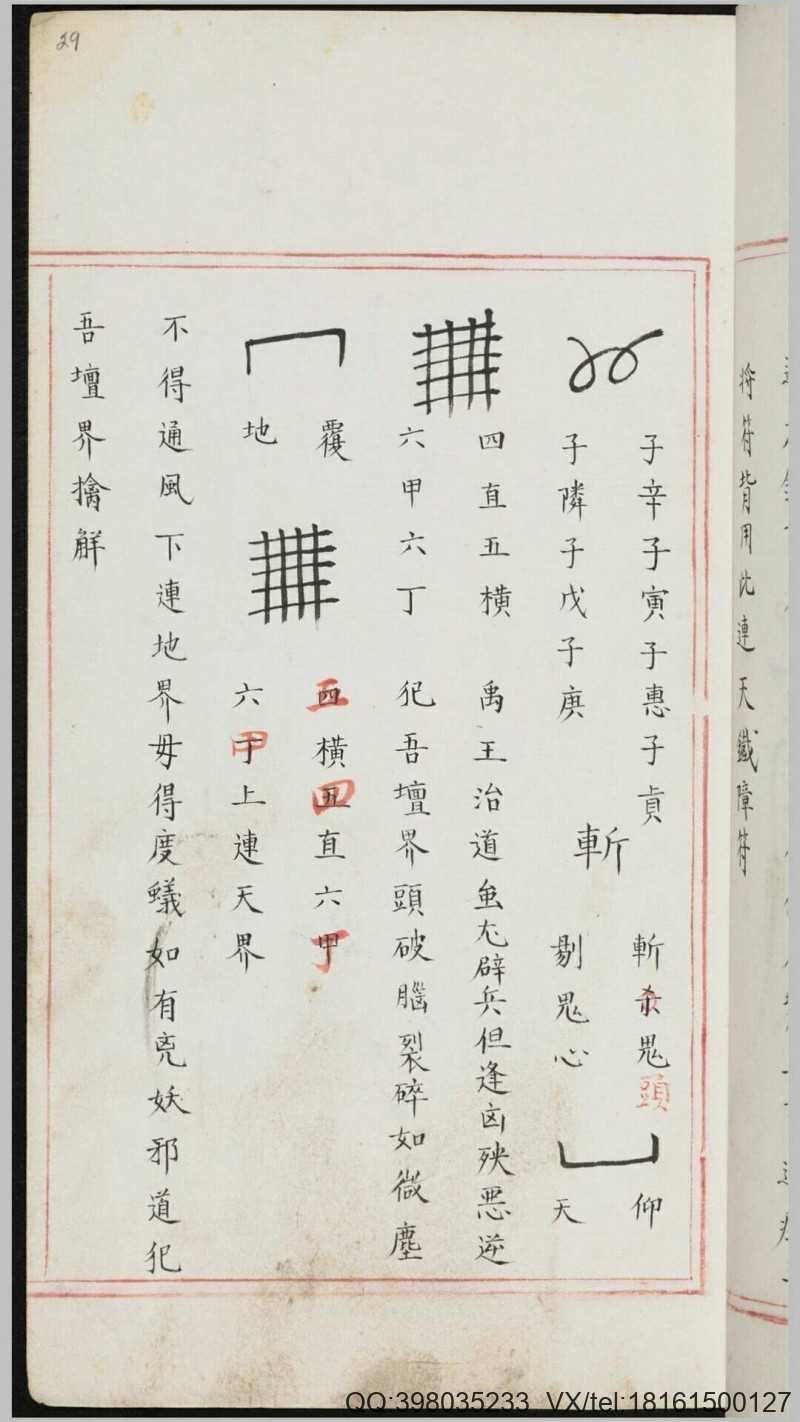 29
將符背用此連天鐵障符
子辛子寅子惠子貞
子隣子戊子庚
斬
斬杀鬼頭
剔鬼心
仰
天
四直五橫
六甲六丁
禹王治道蚩尤辟兵但逢凶殃惡逆
犯吾壇界頭破腦裂碎如微塵
覆
地
四橫五直六甲
五 四 丁
六丁上連天界
甲
不得通風下連地界毋得度蟻如有鬼妖邪道犯
吾壇界擒解
QQ:398035233 VX/tel:18161500127